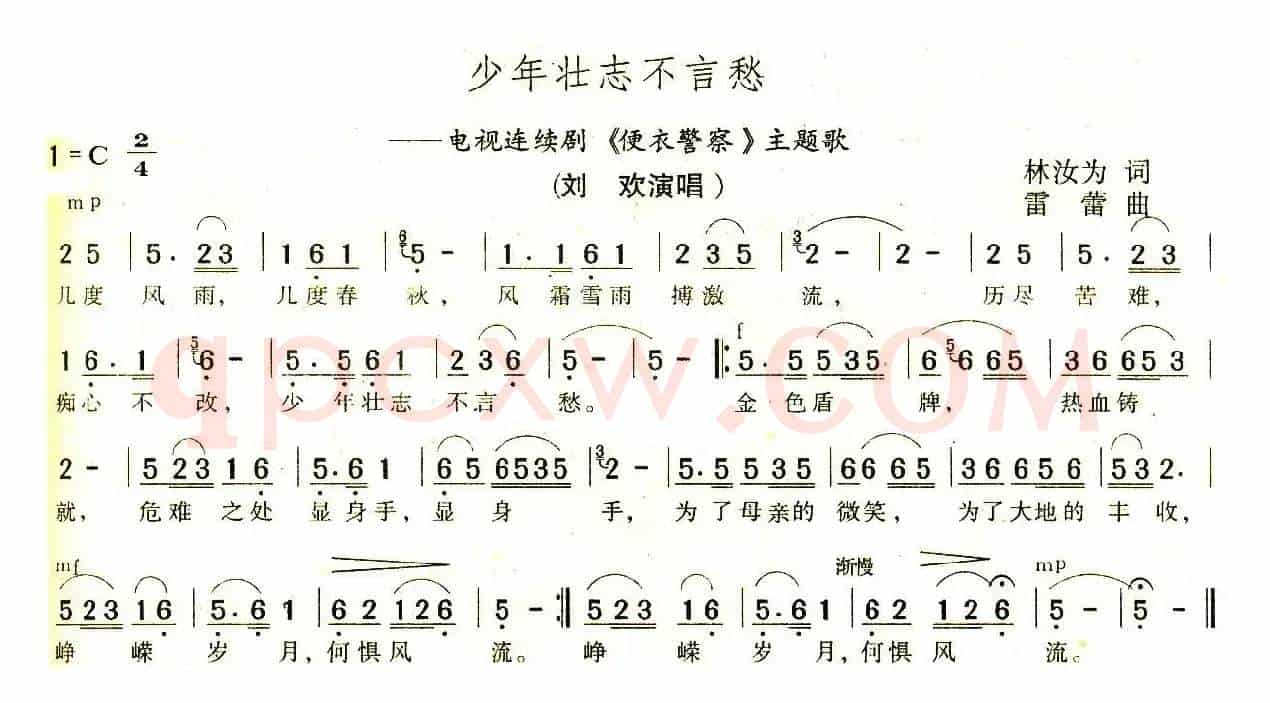 少年壮志不言愁
——电视连续剧《便衣警察》主题歌
1=C 2/4
(刘 欢演唱)
林汝为 词
雷 蕾 曲
mp
2 5 | 5. 23 | 1 6 1 | 6 5 - | 1. 1 6 1 | 2 3 5 | 3 2 - | 2 - | 2 5 | 5. 23 |
几度 风 雨, 几度春 秋, 风 霜雪雨 搏激 流, 历尽 苦 难,
f
1 6. 1 | 5 6 - | 5. 5 6 1 | 2 3 6 | 5 - | 5 - |: 5. 5 5 3 5 | 6 5 6 6 5 | 3 6 6 5 3 |
痴心 不 改, 少 年壮志 不言 愁。 金 色盾 牌, 热血铸
2 - | 5 2 3 1 6 | 5. 6 1 | 6 5 6 5 3 5 | 3 2 - | 5. 5 5 3 5 | 6 6 6 5 | 3 6 6 5 6 | 5 3 2. |
就, 危难 之处 显身手, 显 身 手, 为 了母亲的 微笑, 为了大地的 丰 收,
mf 渐慢 mp
5 2 3 1 6 | 5. 6 1 | 6 2 1 2 6 | 5 - :| 5 2 3 1 6 | 5. 6 1 | 6 2 1 2 6 | 5 - | 5 - ||
峥 嵘 岁 月, 何惧风 流。 峥 嵘 岁 月, 何惧风 流。
qpcxw.COM